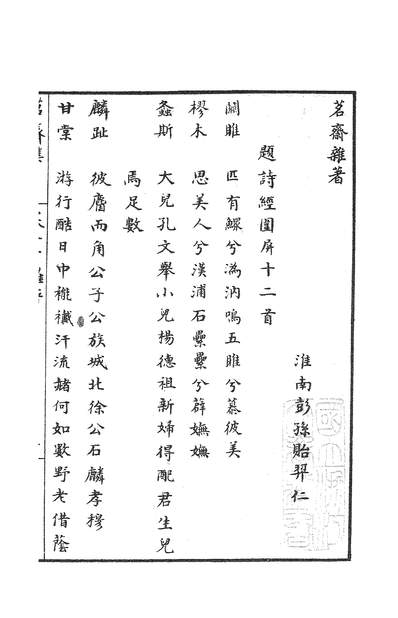 茗齋雜著
淮南彭孫貽羿仁
題詩經圍屏十二首
關雎 匹有鰥兮潙汭嗚五雎兮慕彼美
樛木 思美人兮漢浦石纍纍兮薜嫵嫵
螽斯 大兒孔文舉小兒楊德祖新婦得配君生兒
馬足數
麟趾 彼麕而角公子公族城北徐公石麟孝穆
甘棠 游行酷日中襁襶汗流赭何如數野老借蔭